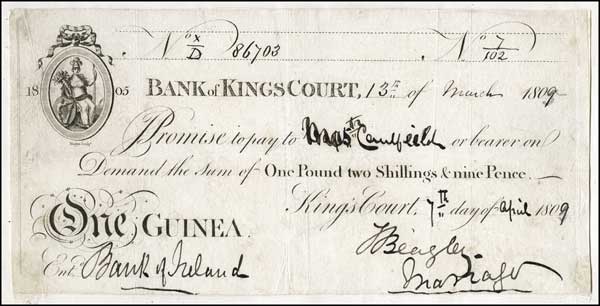 No X/D 86703 No 7/102
18 05
BANK of KINGSCOURT, 13th of March 1809
Promise to pay to Caulfield or bearer on
Demand the Sum of One Pound two Shillings & nine Pence.
KingsCourt, 7th day of April 1809
ONE GUINEA.
Entd. Bank of Ireland